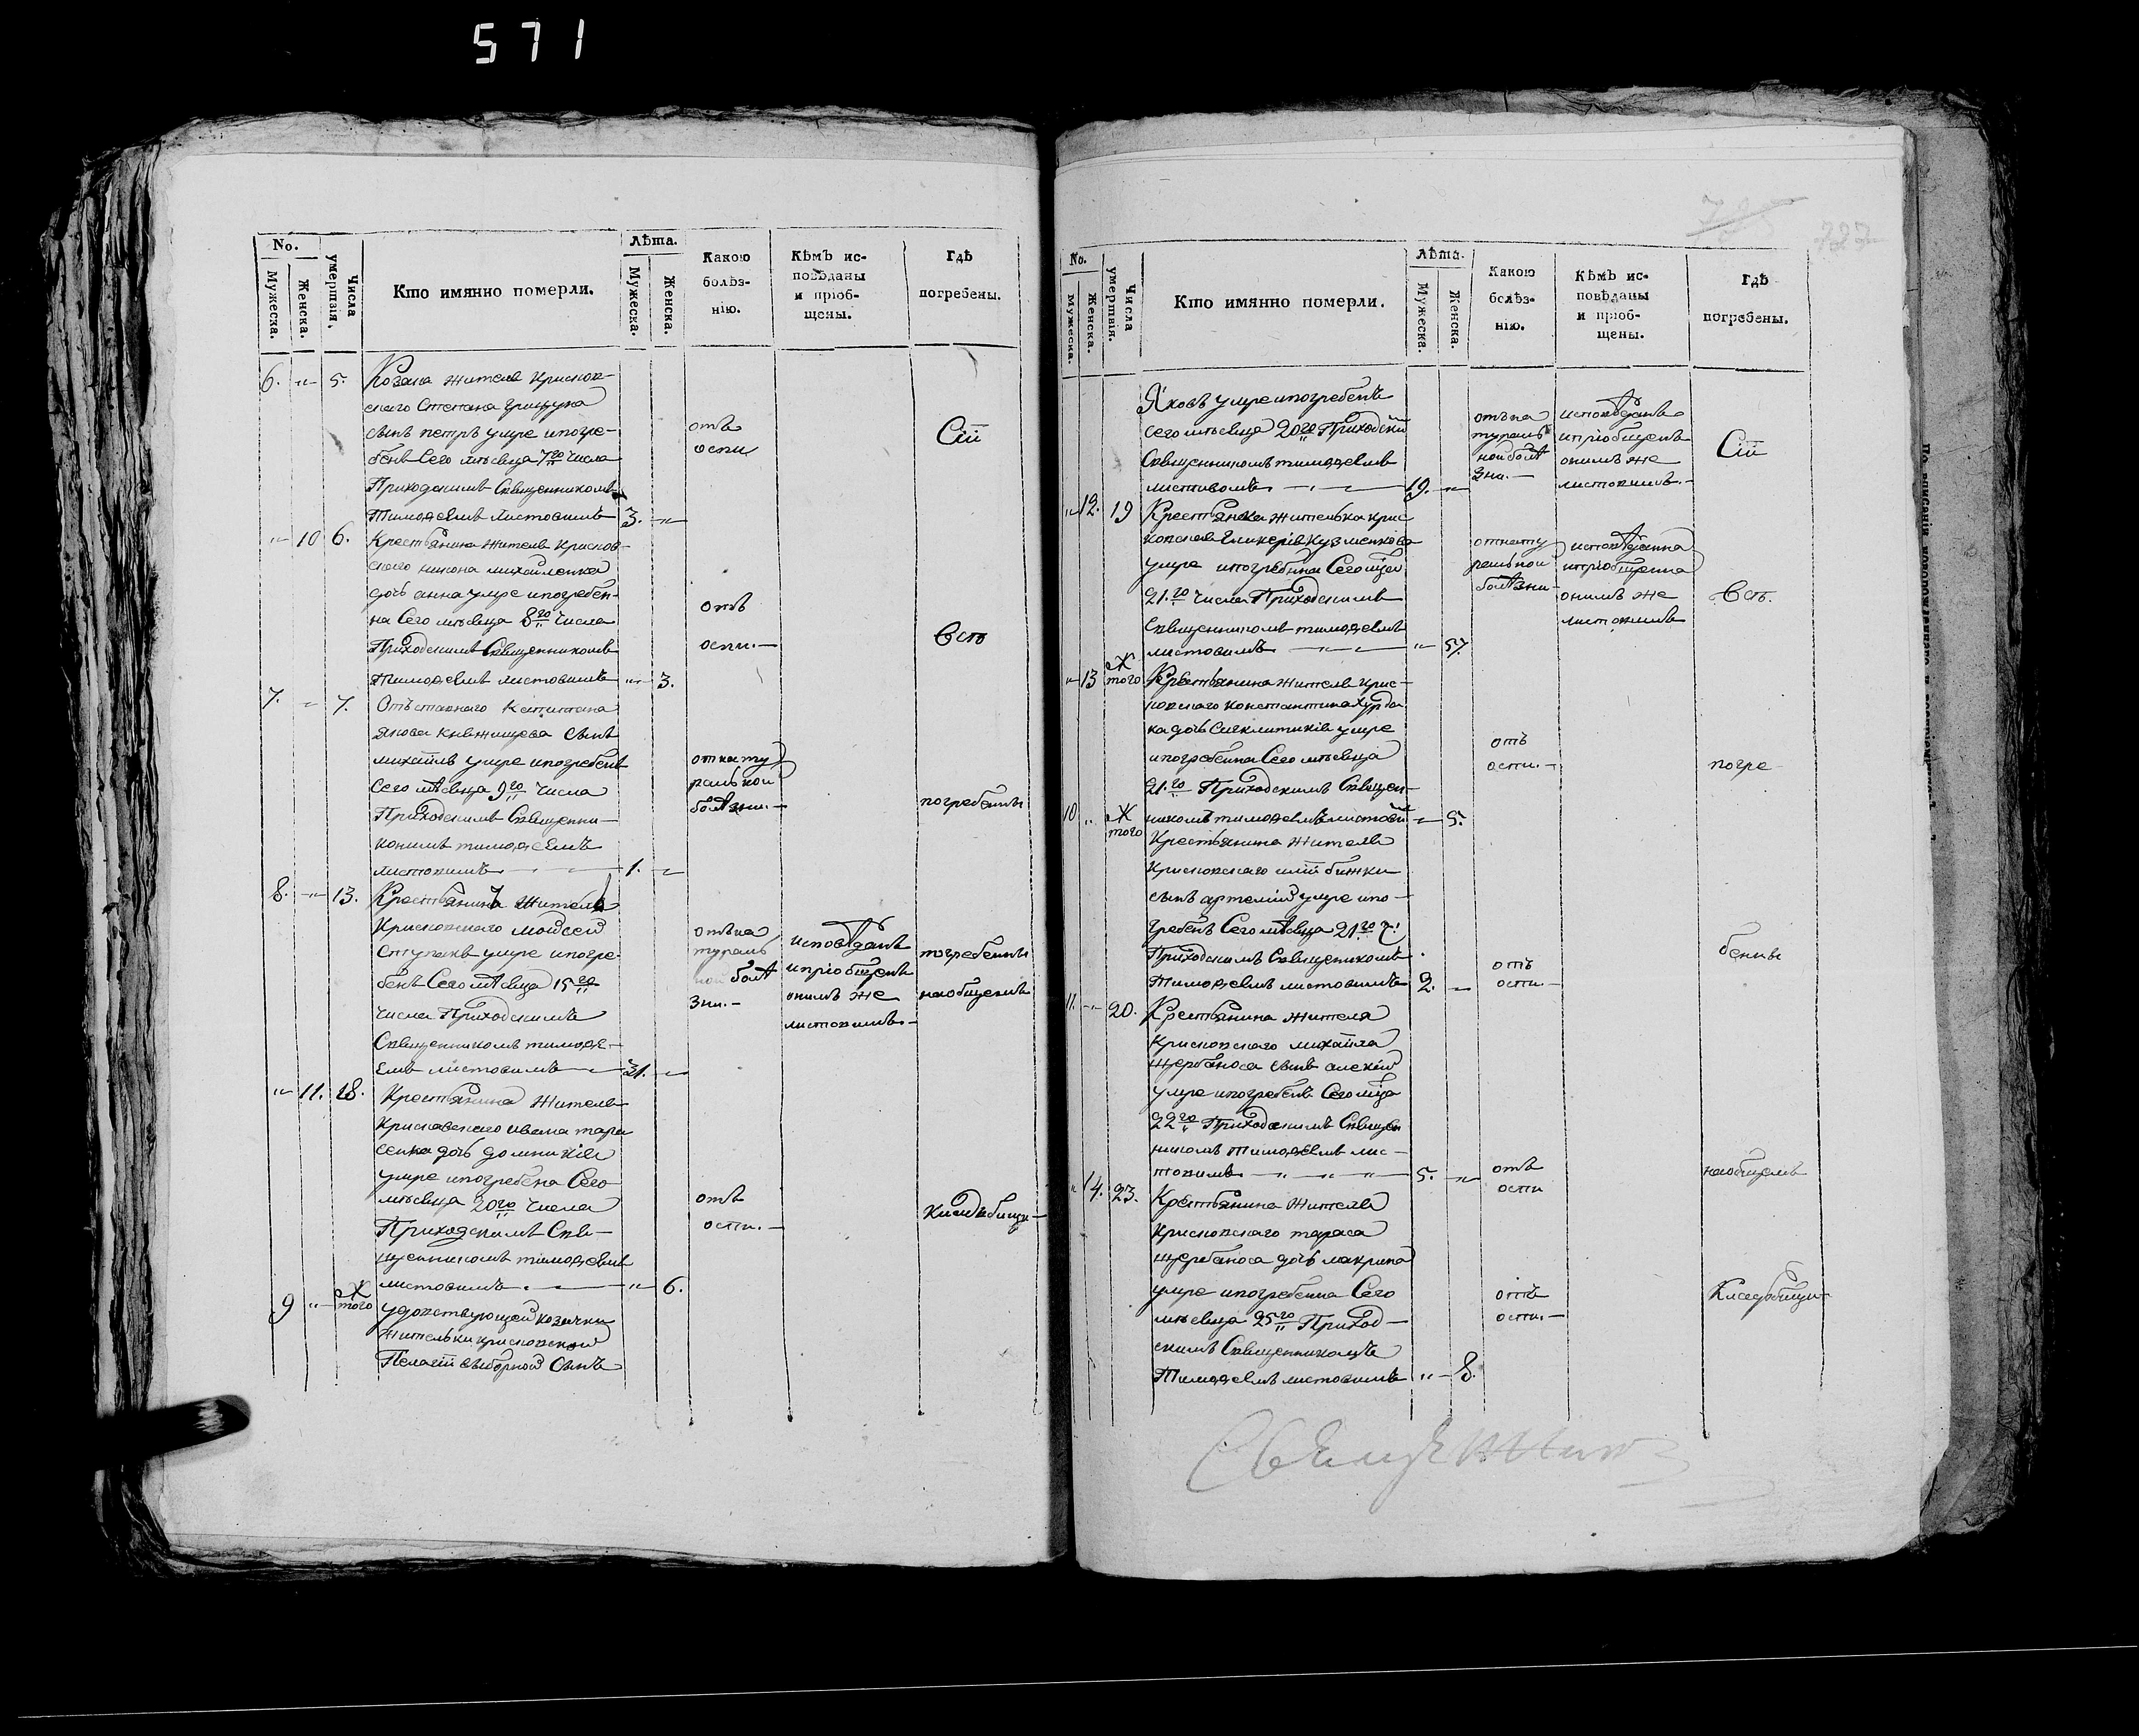 571
No.
Мужеска.
Женска.
Числа умертвія.
Кто имянно померли.
Лѣта.
Мужеска.
Женска.
Какою
болѣз-
нію.
Кѣмъ ис-
повѣданы
и пріоб-
щены.
Гдѣ
погребены.
6. " 5. Козака жителя крисков-
скаго Степана
сынъ петръ умре и погре-
бенъ Сего мѣсяца 7го числа
Приходскимъ Священникомъ
Тимофѣемъ листовимъ 3. "
отъ
оспи
Сіи
" 10 6. Крестьянина жителя крисков-
скаго никона михайленка
дочь анна умре и погребен-
на Сего мѣсяца 8го числа
Приходскимъ Священникомъ
тимофѣемъ листовимъ " 3.
отъ
оспи.
Всѣ
7. " 7. Отъставнаго Капитана
якова сынъ
михаилъ умре и погребенъ
Сего мѣсяца 9го числа
Приходскимъ Священни-
тимофѣемъ
листовимъ 1. "
отнату
ральной
болѣзни.
погребенны
8. " 13. Крестьянинъ Житель
Крисковского моѵсей
Ступакъ умре и погре-
бенъ Сего мѣсяца 15го
числа Приходскимъ
Священникомъ тимофѣ-
емъ листовимъ 31. "
отъна
тураль
ной болѣ
зни.
исповѣданъ
и пріобщенъ
онимъ же
листовимъ
погребенны
наобщемъ
" 11. 18. Крестьянина Жителя
Крисковского ивана тара
сенка дочь домникія
умре и погребена Сего
мѣсяца 20го числа
Приходскимъ Свя-
щенникомъ тимофѣемъ
листовимъ " 6.
отъ
оспи.
Кладбищи
9 " Ж
того удовствующей козачки
жительки крисковской
Пелагіи виборной Сынъ
727
No.
Мужеска.
Женска.
Числа умертвія.
Кто имянно померли.
Лѣта.
Мужеска.
Женска.
Какою
болѣз-
нію.
Кѣмъ ис-
повѣданы
и пріоб-
щены.
Гдѣ
погребены.
Яковъ умре и погребенъ
сего мѣсяца 20го Приходскимъ
Священникомъ тимофѣемъ
листовимъ 19. "
отъна
тураль
ной болѣ
зни.
исповѣданъ
и пріобщенъ
онимъ же
листовимъ.
Сіи
" 12. 19 Крестьянка жителька крис
ковская Гликерія Кузменкова
умре и погребенна Сего мца
21го числа Приходскимъ
Священникомъ тимофѣемъ
листовимъ " 57.
отнату
ральной
болѣзни
исповѣданна
и пріобщенна
онимъ же
листовимъ
Всѣ.
" 13 Ж
того Крестьянина жителя крис-
ковскаго константина
ка дочь Сигклитикія умре
и погребенна Сего мѣсяца
21го Приходскимъ Священ-
никомъ тимофѣемъ листовим " 5.
отъ
оспи.
погре
10 " Ж
того
Крестьянина жителя
Крисковского
сынъ артемій умре и по-
гребенъ Сего мѣсяца 21го ч:
Приходскимъ Священикомъ
Тимофѣемъ листовимъ 2. "
отъ
оспи
бенны
11. " 20. Крестьянина жителя
Крисковского михаила
щербаноса сынъ алексій
умре и погребенъ Сего мца
22го Приходскимъ Священ
никомъ тимофѣемъ лис-
товимъ 5. "
отъ
оспи
наобщемъ
" 14. 23. Крестьянина жителя
Крисковского тараса
щербаноса дочь макрина
умре и погребенна Сего
мѣсяца 25го Приход-
скимъ Священникомъ
Тимофѣемъ листовимъ " 8.
отъ
оспи.
Кладбищи
Священникъ